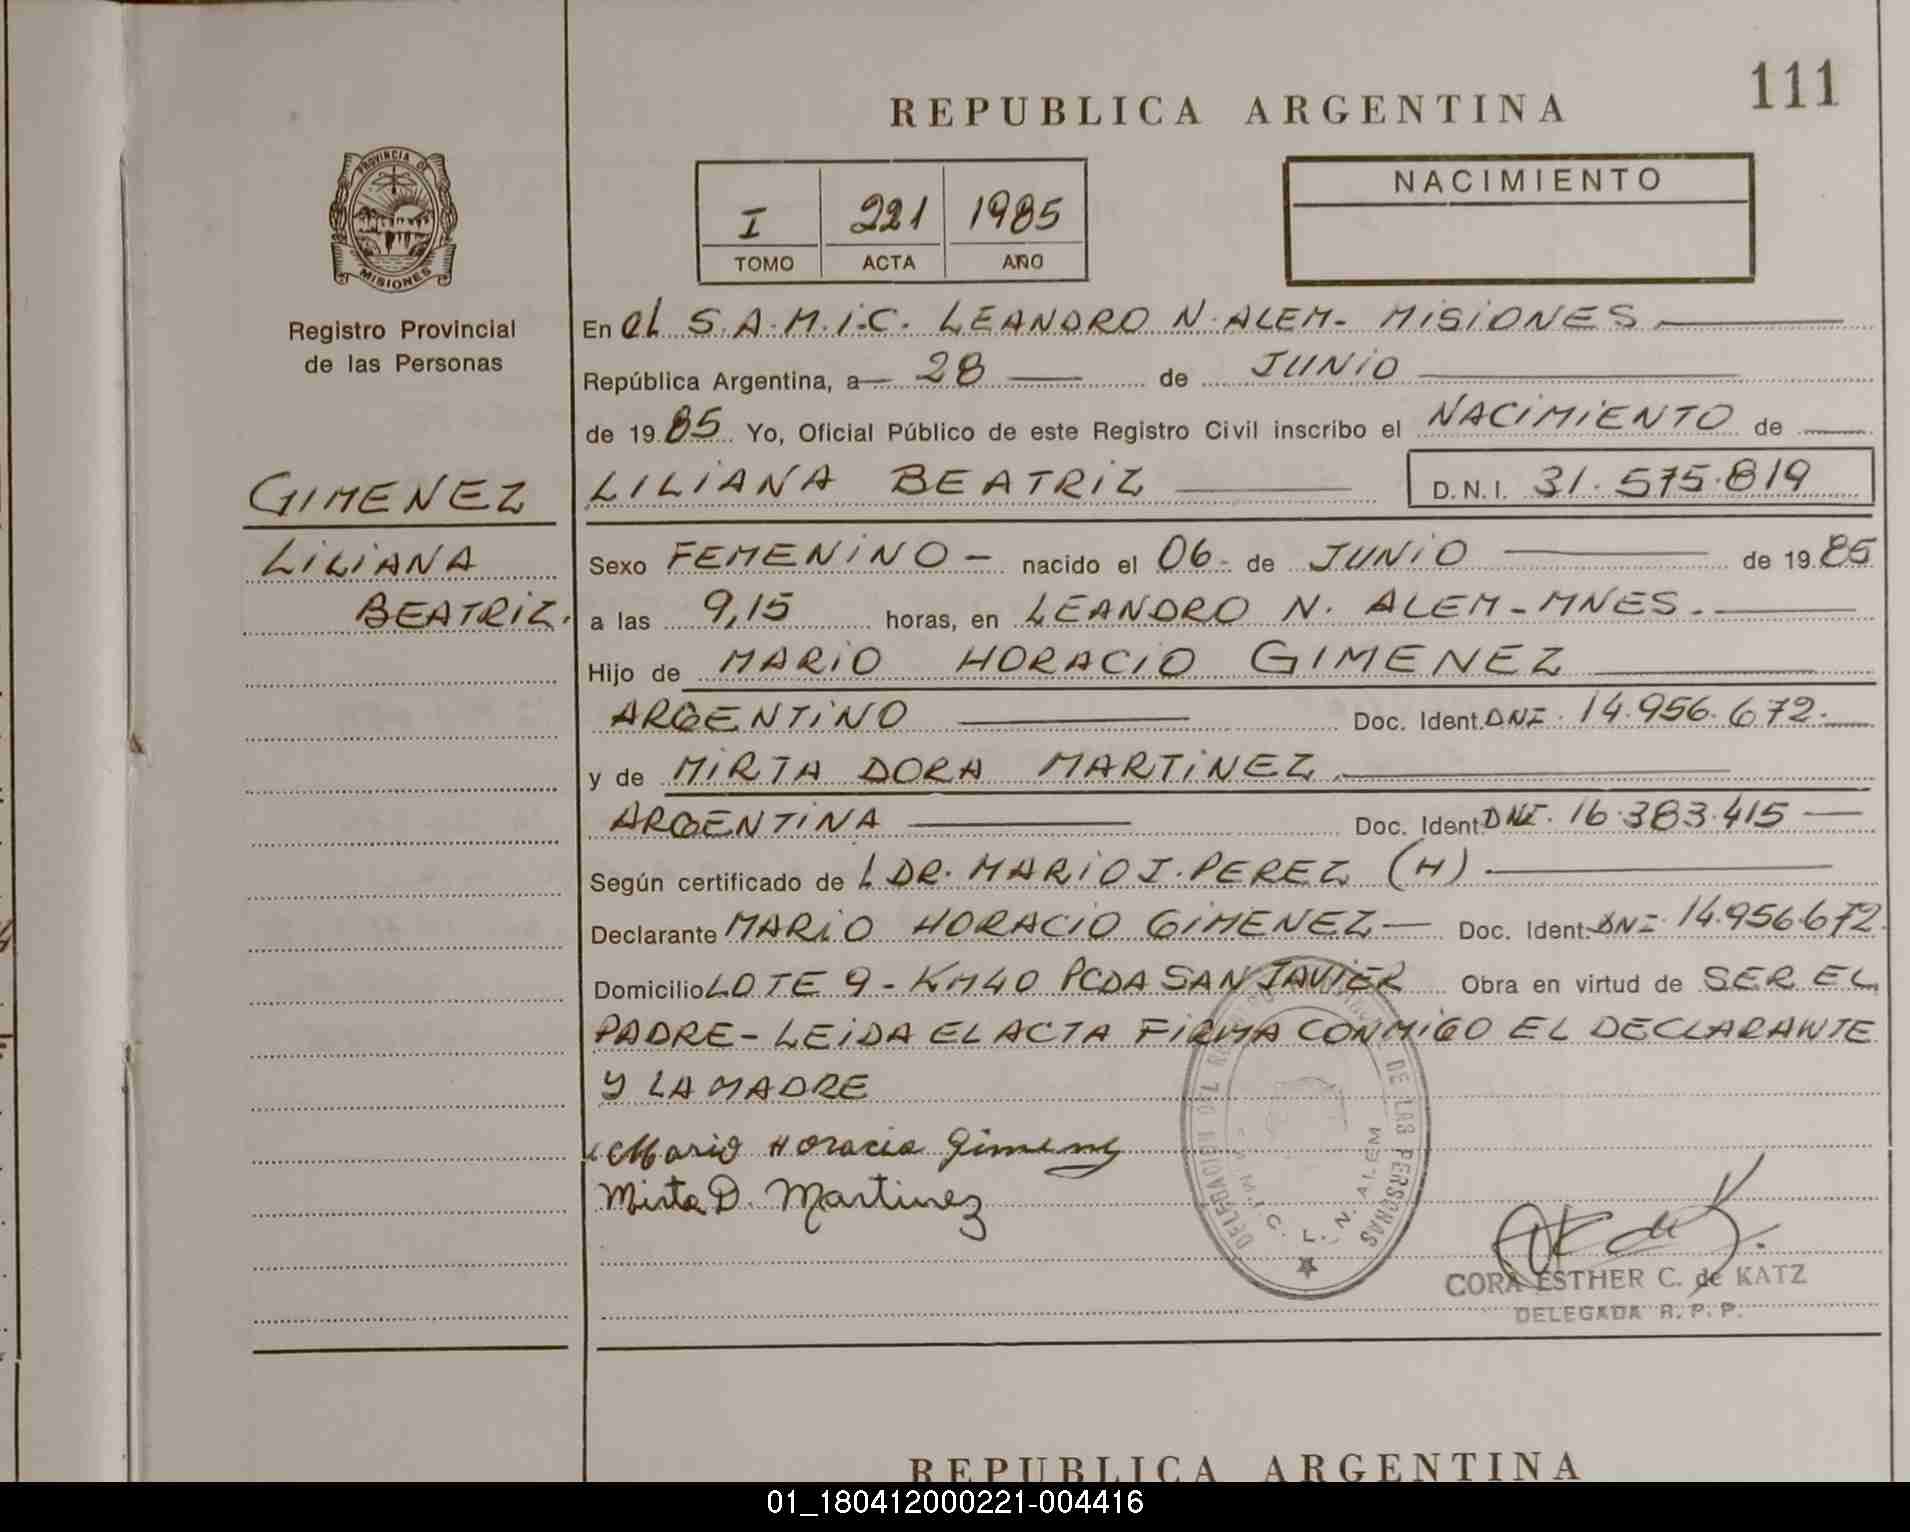 111
REPUBLICA ARGENTINA
PROVINCIA DE
MISIONES
Registro Provincial
de las Personas
I 221 1985
TOMO ACTA AÑO
NACIMIENTO
En el S.A.M.i.C. LEANDRO N. ALEM- MiSiONES
República Argentina, a 28 de JUNiO
de 1985 Yo, Oficial Público de este Registro Civil inscribo el NACiMiENTO de
GIMENEZ
LiLiANA
BEATRiZ.
LiLiANA BEATRiZ D.N.I. 31.575.819
Sexo FEMENiNO - nacido el 06 de JUNiO de 1985
a las 9,15 horas, en LEANDRO N. ALEM-MNES.
Hijo de MARiO HORACiO GIMENEZ
ARGENTiNO Doc. Ident. DNI 14.956.672.
y de MiRTA DORA MARTiNEZ
ARGENTiNA Doc. Ident DNI. 16.383.415
Según certificado de L DR. MARiO I. PEREZ (H)
Declarante MARiO HORACiO GiMENEZ Doc. Ident. DNI 14.956.672.
Domicilio LOTE 9 - KM40 PCDA SAN JAViER Obra en virtud de SER EL
PADRE - LEiDA EL ACTA FiRMA CONMiGO EL DECLARANTE
Y LA MADRE
Mario Horacio Gimenez
Mirta D. Martinez
DE LAS PERSONAS
L. N. ALEM
CORA ESTHER C. de KATZ
DELEGADA R. P. P.
REPUBLICA ARGENTINA
01_180412000221-004416